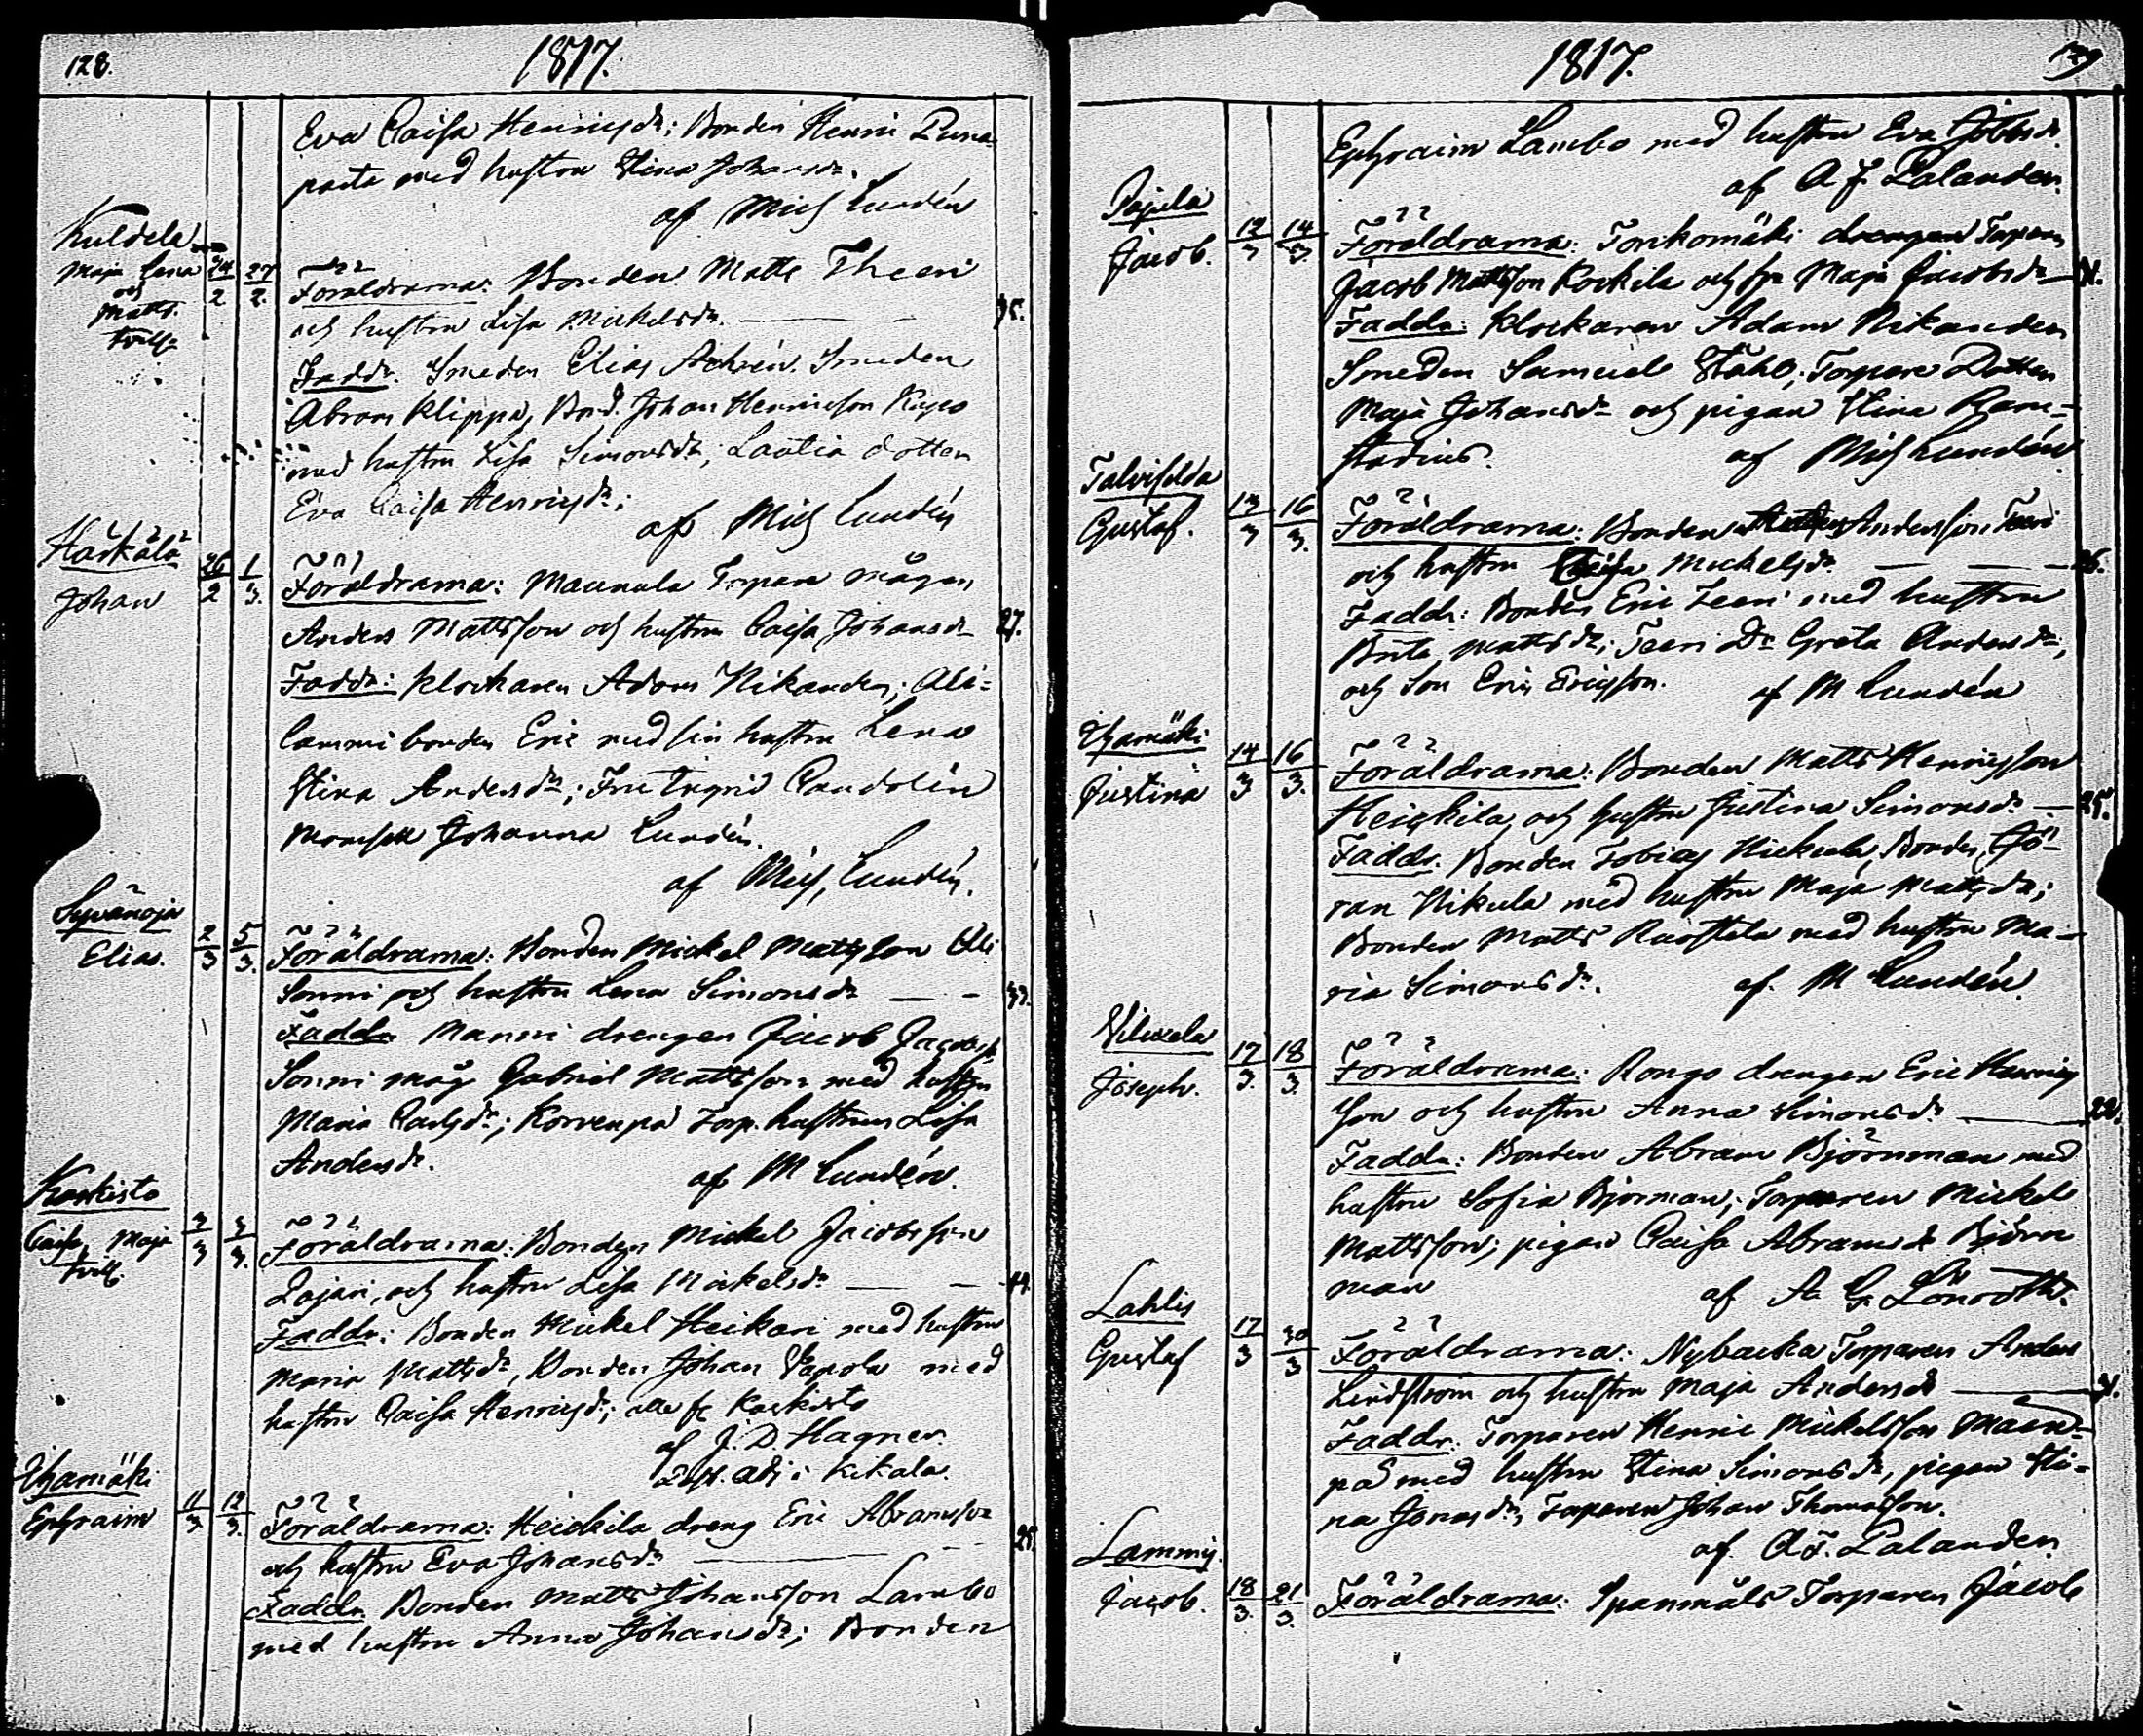 128.
1817.
Eva Caisa Henrichsdr; Bonden Henric Puna
parta med hustru Stina Johansdr.
af Mich Lundén
Kuldela
Maja Lena
och
Matts.
tvill:
24/2 27/2
Föräldrarna: Bonden Matts Theeri
och hustru Lisa Mickelsdr. 35.
Faddr. Smeden Elias Achrén. Smeden
Abram Klippa, Bond. Johan Henricsson
med hustru Lisa Simonsdr, dotter
Eva Caisa Henricsdr;
af Mich Lundén
Härkälä
Johan
26/2 1/3.
Föräldrarna: Maunula Torpare mågen
Anders Mattsson och hustru Caisa Johansdr 27.
Faddr: Klockaren Adam Nikander; Ali=
lammi bonden Eric med sin hustru Lena
Stina Andersdr; Fru Ingrid Candolin
Mamsell Johanna Lundén.
af Mich, Lundén.
Syvänoja
Elias.
2/3 5/3.
Föräldrarna: Bonden Mickel Mattsson Ali
Sonni och hustru Lena Simonsdr 33.
Faddr Manni drengen Jacob Jacobss.
Sonni måg Gabriel Mattsson med hustru
Maria Carlsdr; Korvenpä Torp. hustrun Lisa
Andersdr.
af M Lundén.
Koskisto
Caisa Maja
tvill.
3/3 3/3.
Föräldrarna: Bonden Mickel Jacobsson
Pajari, och hustru Lisa Mickelsdr 44.
Faddr: Bonden Mickel Heikari med hustru
Maria Mattsdr, Bonden Johan Papola med
hustru Caisa Henricsdr; alle fr Koskisto
af J. D. Hagner.
adj i Kikala.
Ihamäki
Ephraim
11/3 12/3.
Föräldrarna: Heickila dreng Eric Abramsson
och hustru Eva Johansdr 25.
Faddr Bonden Matts Johansson Lambo
med hustru Anna Johansdr; Bonden
1817.
129
Ephraim Lambo med hustru Eva Jöbbsdr.
af A J Palander.
Pajula
Jacob.
12/3 14/3.
Föräldrarna: Torikomäki drengen Torparen
Jacob Mattsson Kockila och hu Maja Jacobsdr 31.
Faddr: Klockaren Adam Nikander
Smeden Samuel Ståhl; Torpare Dotter
Maja Johansdr och pigan Stina Ram=
stadius. af Mich Lundén
Talvisilda
Gustaf.
13/3 16/3.
Föräldrarna: Bonden Andersson Teeri
och hustru Caisa Mickelsdr. 26.
Faddr: Bonden Eric Teeri med hustru
Brita Mattsdr; Teeri Dr Greta Andersdr,
och Son Eric Ericsson. af M Lundén
Ihamäki
Justina
14/3 16/3.
Föräldrarna: Bonden Matts Henricsson
Heickila och hustru Justina Simonsdr 25.
Faddr. Bonden Tobias Nickula, Bonden Gö=
ran Nikula med hustru Maja Mattsdr;
Bonden Matts Ruostela med hustru Ma=
ria Simonsdr. af. M Lundén.
Viluxela
Joseph.
17/3. 18/3.
Föräldrarna: Rongo drengen Eric Henric
son och hustru Anna Simonsdr 22.
Faddr: Bonden Abram Björnman med
hustru Sofia Björman; Torparen Mickel
Mattsson; pigan Caisa Abramsdr Björn
man af A G Lönroth.
Lahlis
Gustaf
17/3 30/3
Föräldrarna: Nybacka Torparen Anders
Lindström och hustru Maja Andersdr 31.
Faddr: Torparen Henric Mickelsson Maen=
pä med hustru Stina Simonsdr, pigan Sti=
na Jonasdr, Torparen Johan Thomasson.
af A J. Palander.
Lammi.
Jacob.
18/3. 21/3.
Föräldrarna: Spanmåls Torparen Jacob